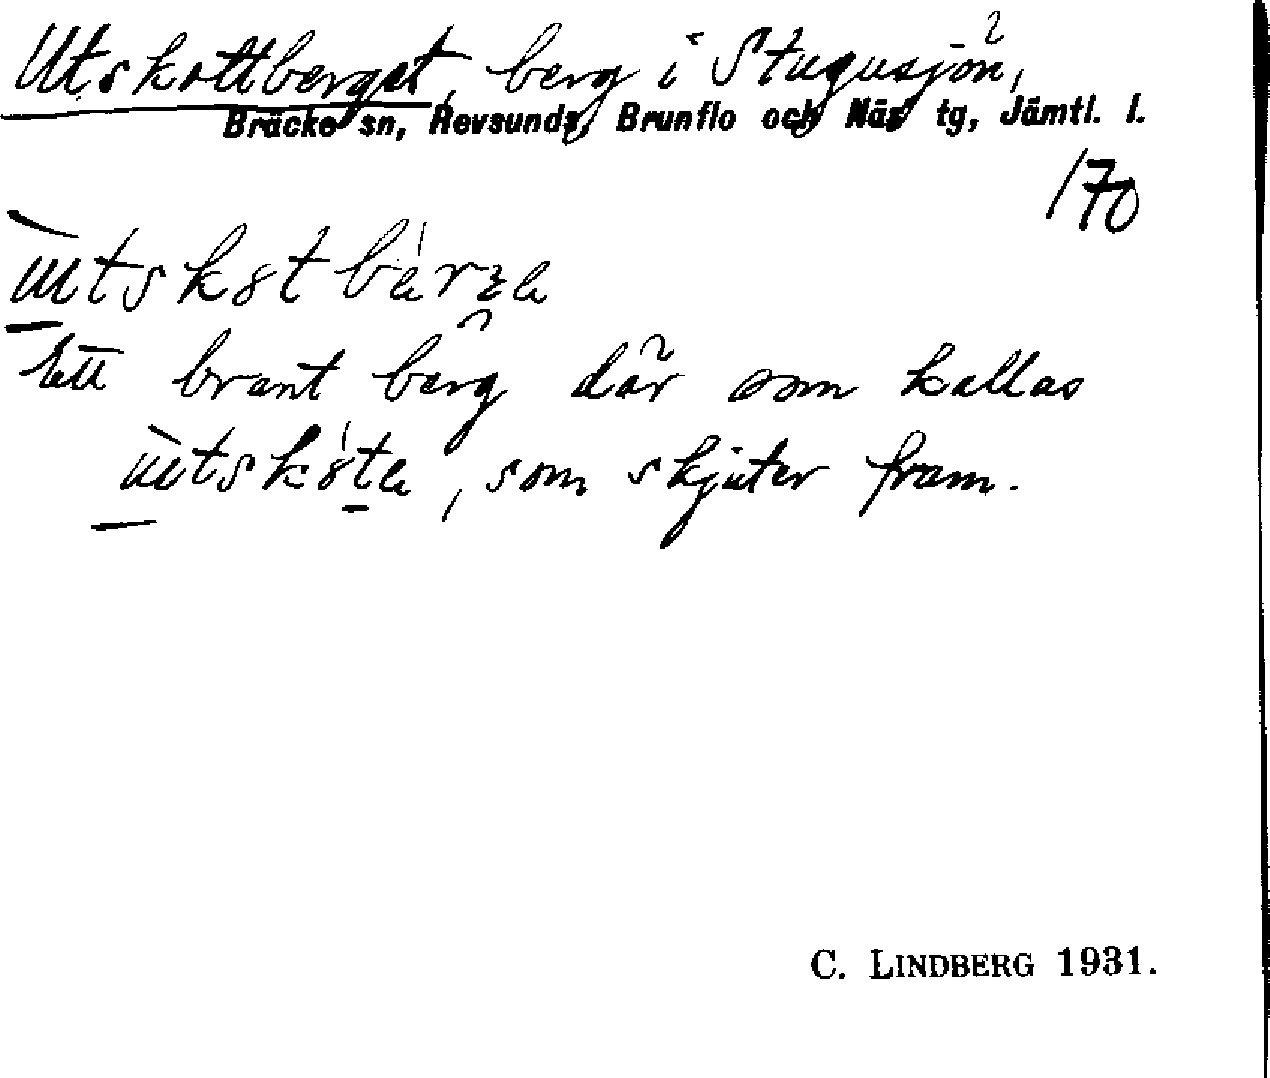 Utskottberget, berg i Stugusjön,
Bräcke sn, Revsunds, Brunflo och Näs tg, Jämtl. l.
170
Ett brant berg där som kallas
, som skjuter fram.
C. LINDBERG 1931.